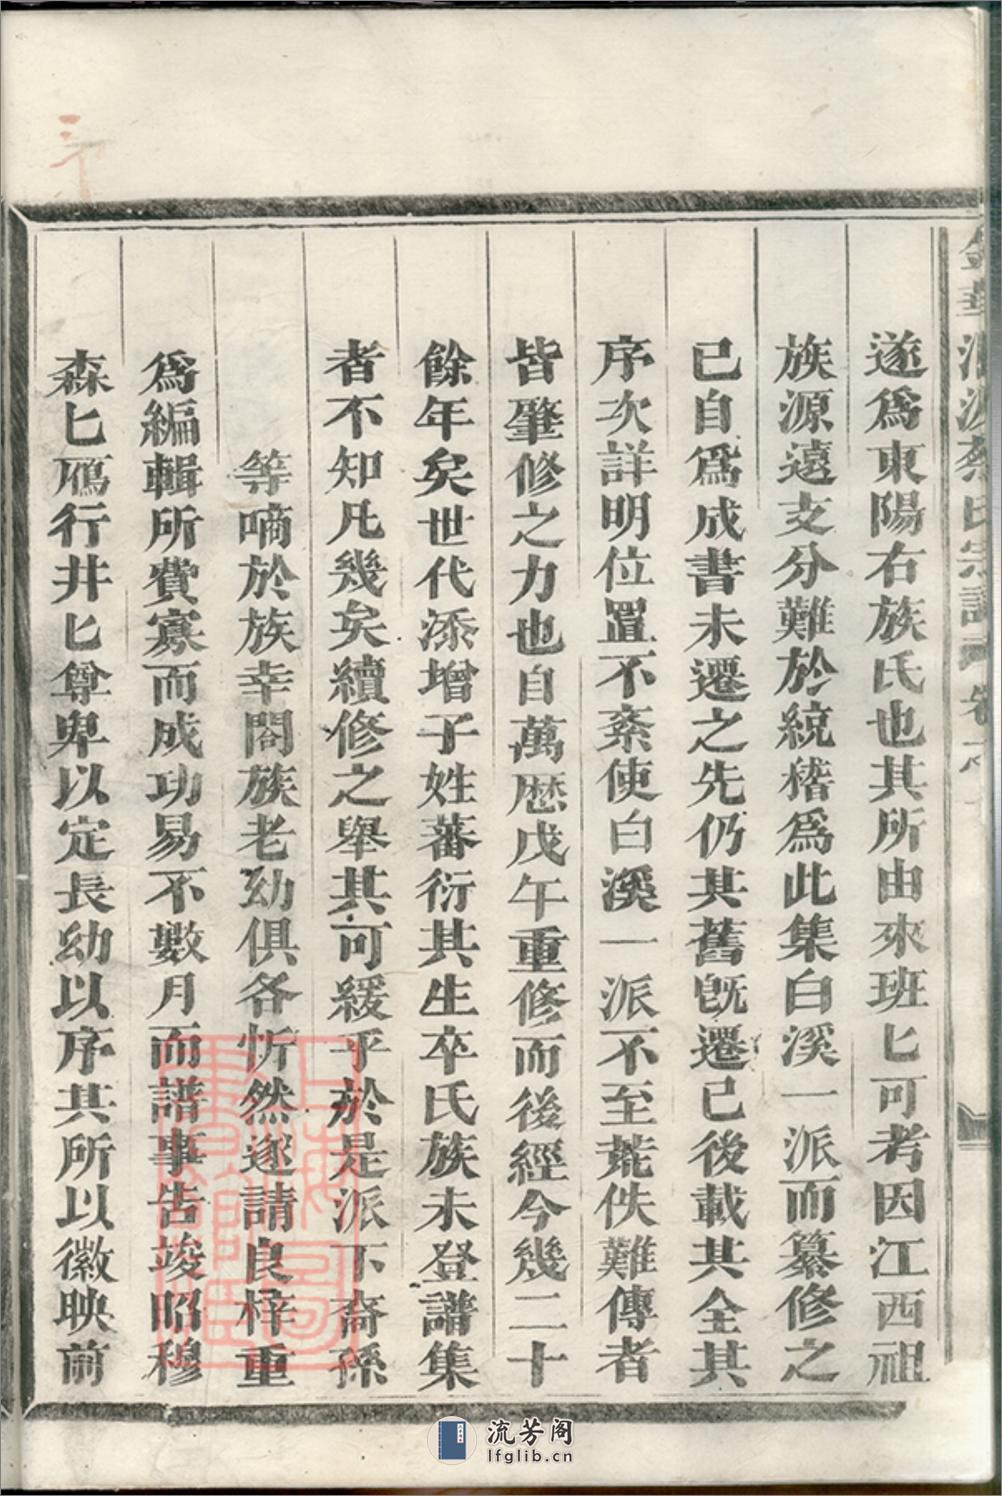 遂爲東陽右族氏也其所由來班匕可考因江西祖
族源遠支分難於統稽爲此集白溪一派而纂修之
已自爲成書未遷之先仍其舊旣遷已後載其全其
序次詳明位置不紊使白溪一派不至蓰佚難傳者
皆肇修之力也自萬厯戊午重修而後經今幾二十
餘年矣世代添增子姓蕃衍其生卒氏族未登譜集
者不知凡幾矣續修之舉其可緩乎於是派下裔孫
等啇於族幸閤族老幼俱各忻然遂請良梓重
爲編輯所費寡而成功易不數月而譜事告竣昭穆
森匕鴈行井匕尊卑以定長幼以序其所以徽映前
流芳阁
lfglib.cn